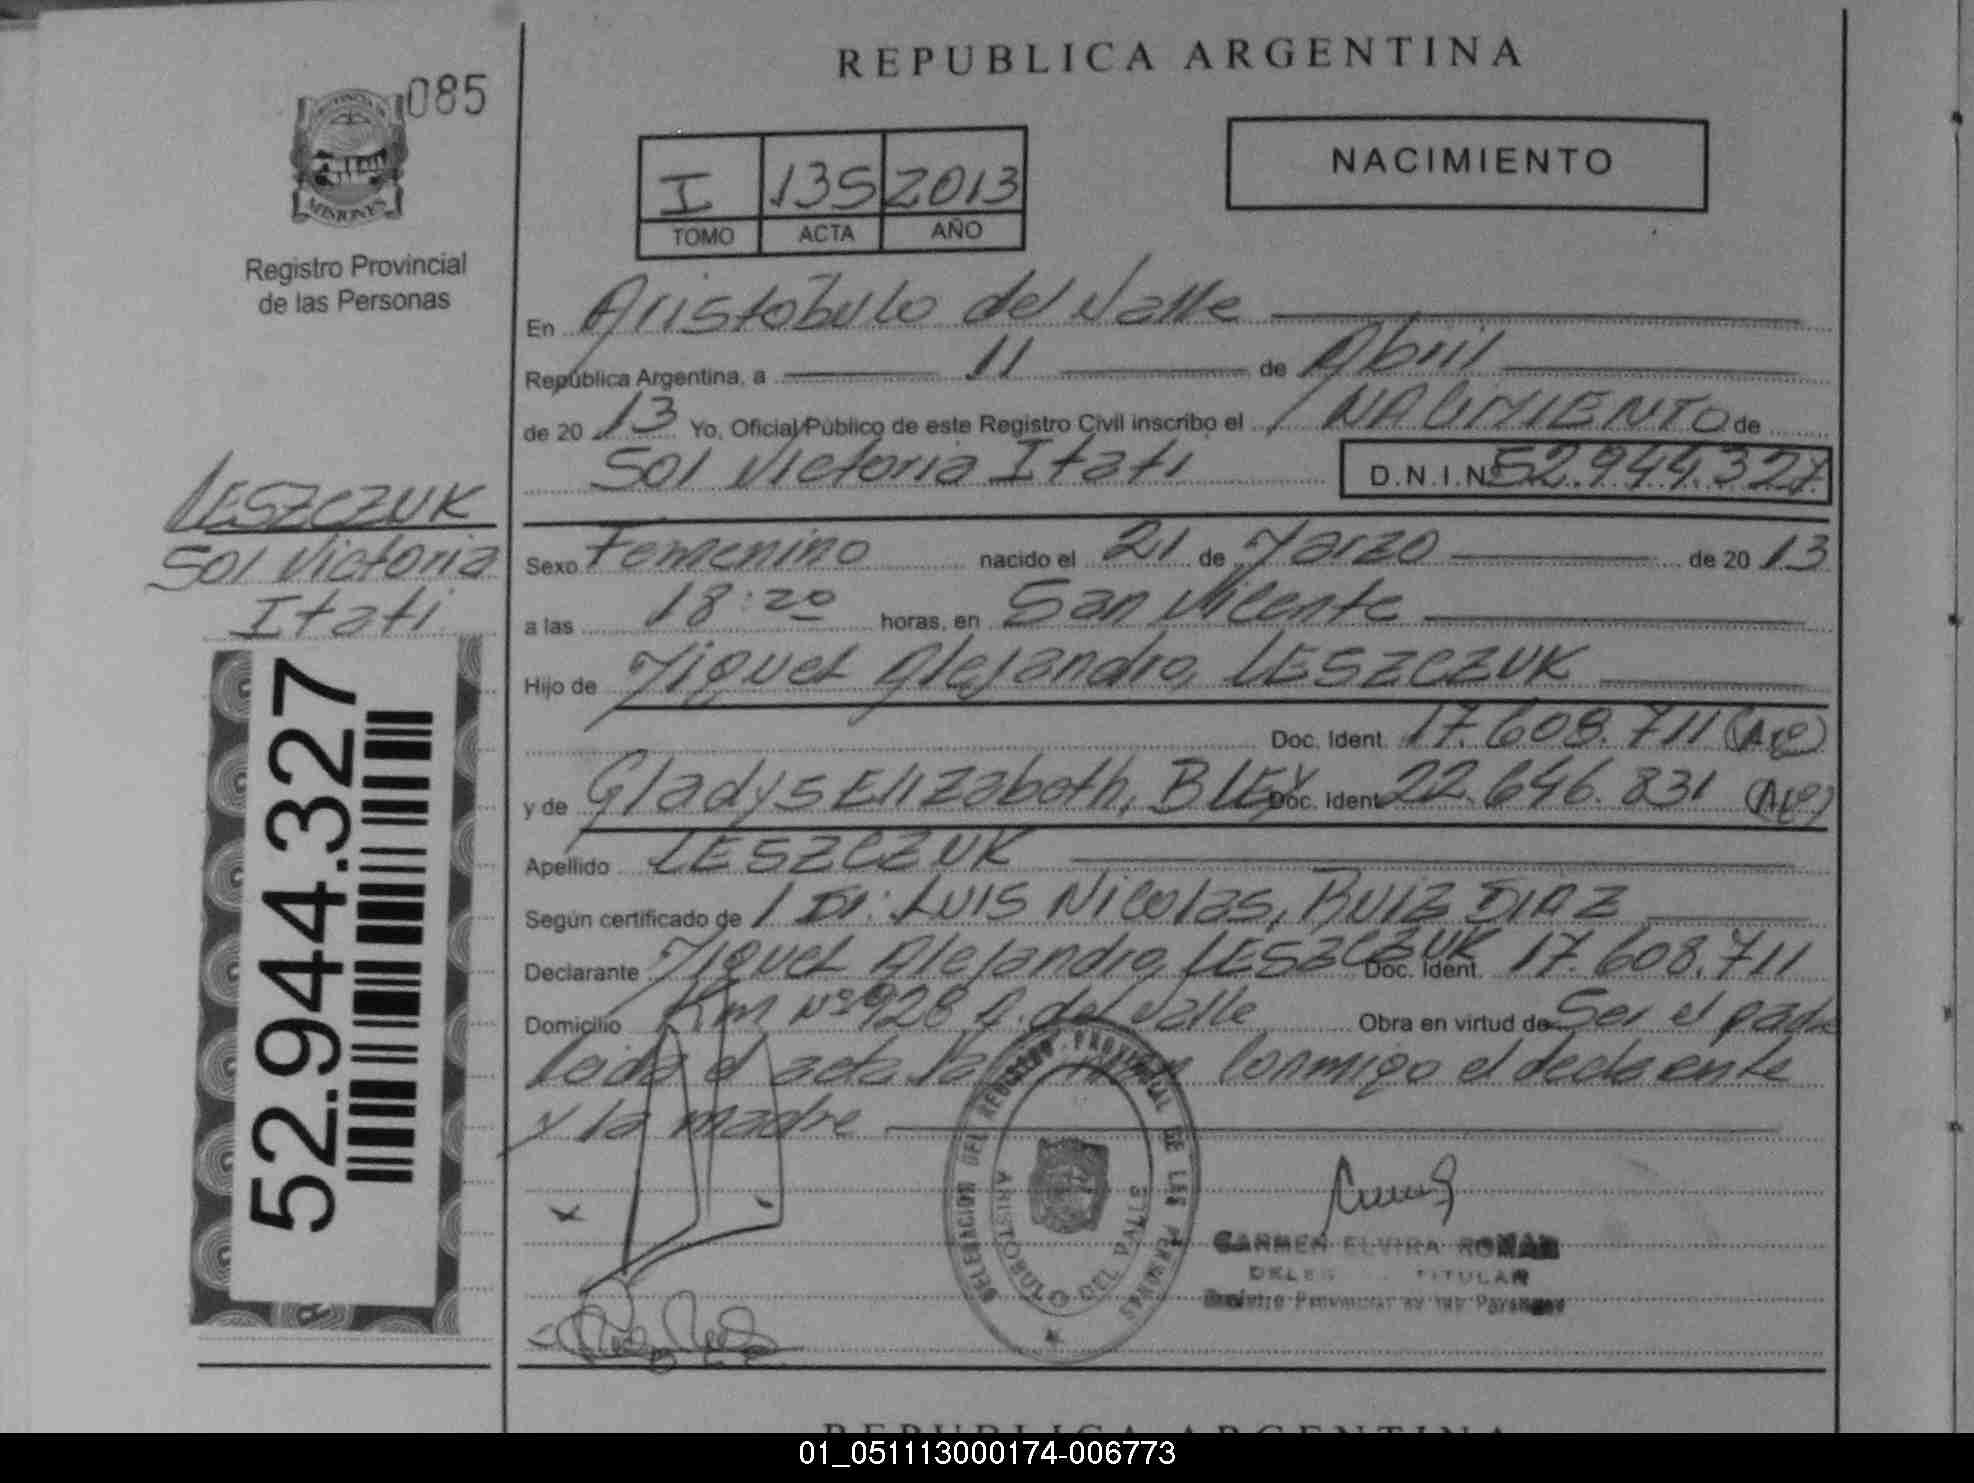 REPUBLICA ARGENTINA
085
MISIONES
Registro Provincial
de las Personas
I 135 2013
TOMO ACTA AÑO
NACIMIENTO
En Aristóbulo del Valle
República Argentina, a 11 de Abril
de 20 13 Yo, Oficial Público de este Registro Civil inscribo el NACIMIENTO de
Sol Victoria Itati D.N.I.N 52.944.327
LESZCZUK
Sol Victoria
Itati
52.944.327
Sexo Femenino nacido el 21 de Marzo de 20 13
a las 18:20 horas, en San Vicente
Hijo de Miguel Alejandro, LESZCZUK
Doc. Ident. 17.608.711 (Arg)
y de Gladys Elizabeth, BLEY Doc. Ident 22.646.831 (Arg)
Apellido LESZCZUK
Según certificado de Dr: Luis Nicolas, RUIZ DIAZ
Declarante Miguel Alejandro, LESZCZUK Doc. Ident. 17.608.711
Domicilio Km Nº 928 A. del Valle Obra en virtud de Ser el padre
Leida el acta la conmigo el declarante
y la madre
DELEGACION DEL REGISTRO PROVINCIAL DE LAS PERSONAS
ARISTOBULO DEL VALLE
CARMEN ELVIRA ROMAN
TITULAR
Registro Provincial de las Personas
REPUBLICA ARGENTINA
01_051113000174-006773